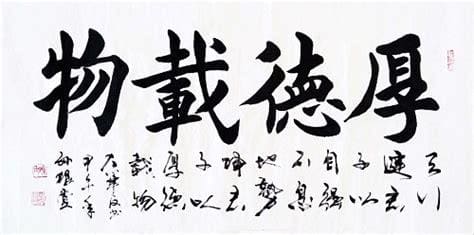 厚德載物
天行
健君
子以
自強
不息
地勢
坤君
子以
厚德
載物
甲午年